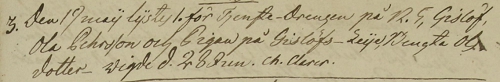 3. Den 17 maÿ lystes 1. för Tjenste-Drengen på N. 5, Gislöf,
Ola Pehrsson och Pigan på Gislöfs-Leije Bengta Ols
dotter – vigde d. 28 Jun.